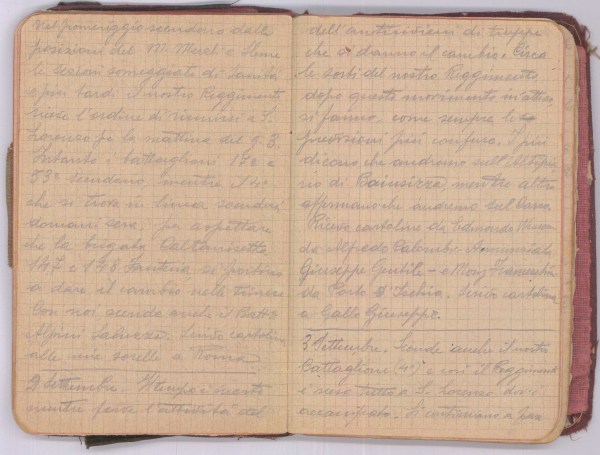 Nel pomeriggio scendono dalle
posizioni del M. Merzli e Sleme
le sezioni someggiate di sanità
e più tardi il nostro Reggimento
riceve l'ordine di riunirsi a S.
Lorenzo per la mattina del g. 3.
Intanto i battaglioni 17° e
53° scendono, mentre il 4°
che si trova in linea scenderà
domani sera, per aspettare
che la brigata Caltanisetta
147 e 148 Fanteria si portino
a dare il cambio nelle trincee
Con noi scende anche il Batt.
Alpini Saluzzo. Invio cartoline
alle mie sorelle a Roma
2 Settembre. Il tempo è incerto
mentre ferve l'attività del
dell'avvicinarsi di truppe
che si danno il cambio. Circa
le sorti del nostro Reggimento
dopo questo movimento inatteso
si fanno, come sempre le
previsioni più confuse. I più
dicono che andremo sull'Altipia
no di Bainsizza, mentre altri
affermano che andremo sul Carso
Ricevo cartoline da Edmondo
da Alfredo Calembi
Giuseppe Gentile - e Mons.
da Porto d'Ischia. Invio cartolina
a Gallo Giuseppe.
3 Settembre. Scende anche il nostro
Battaglione (4°) e così il Reggimento
è reso tutto a S. Lorenzo dove
accantonato. Si continuano a fare